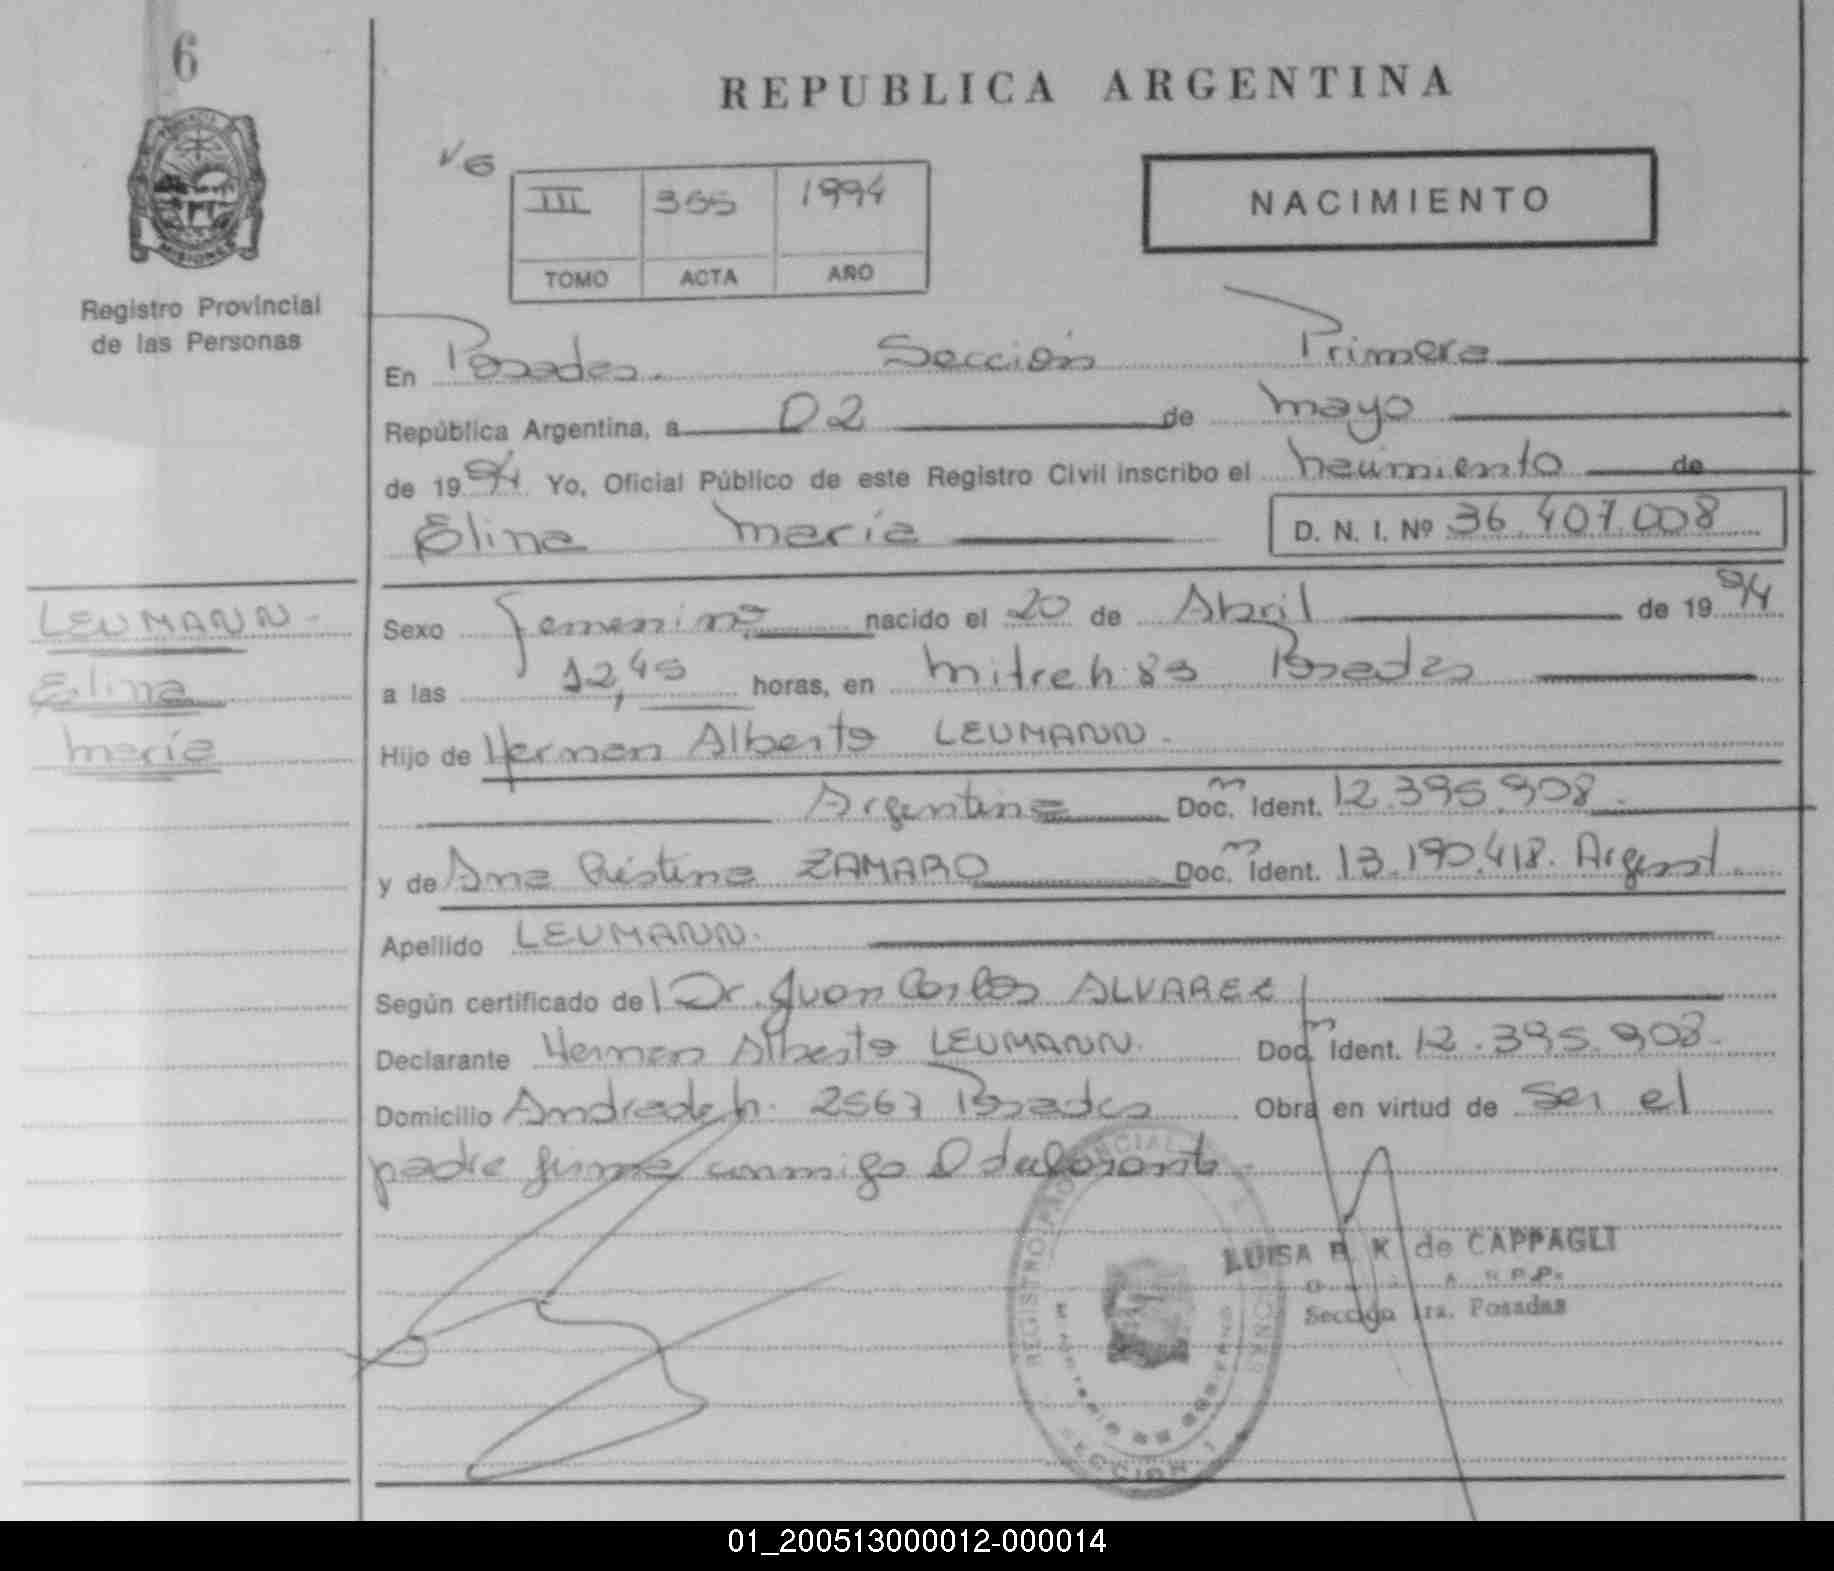 6
REPUBLICA ARGENTINA
III 355 1994
TOMO ACTA AÑO
NACIMIENTO
MISIONES
Registro Provincial
de las Personas
En Posadas. Sección Primera
República Argentina, a 02 de mayo
de 1994. Yo, Oficial Público de este Registro Civil inscribo el nacimiento de
Elina María D. N. I. Nº 36.407.008
LEUMANN.
Elina
María
Sexo femenino nacido el 20 de Abril de 1994
a las 12,45 horas, en Mitre h. 83 Posadas
Hijo de Hernan Alberto LEUMANN.
Argentino Doc. Ident. 12.395.908.
y de Ana Cristina ZAMARO Doc. Ident. 13.190.418. Argent.
Apellido LEUMANN.
Según certificado de Dr. Juan Carlos ALVAREZ
Declarante Hernan Alberto LEUMANN. Doc. Ident. 12.395.908.
Domicilio Andrade h. 2567 Posadas Obra en virtud de ser el
padre firma conmigo
REGISTRO PROVINCIAL
SECCION 1
LUISA K de CAPPAGLI
Sección 1ra. Posadas
01_200513000012-000014